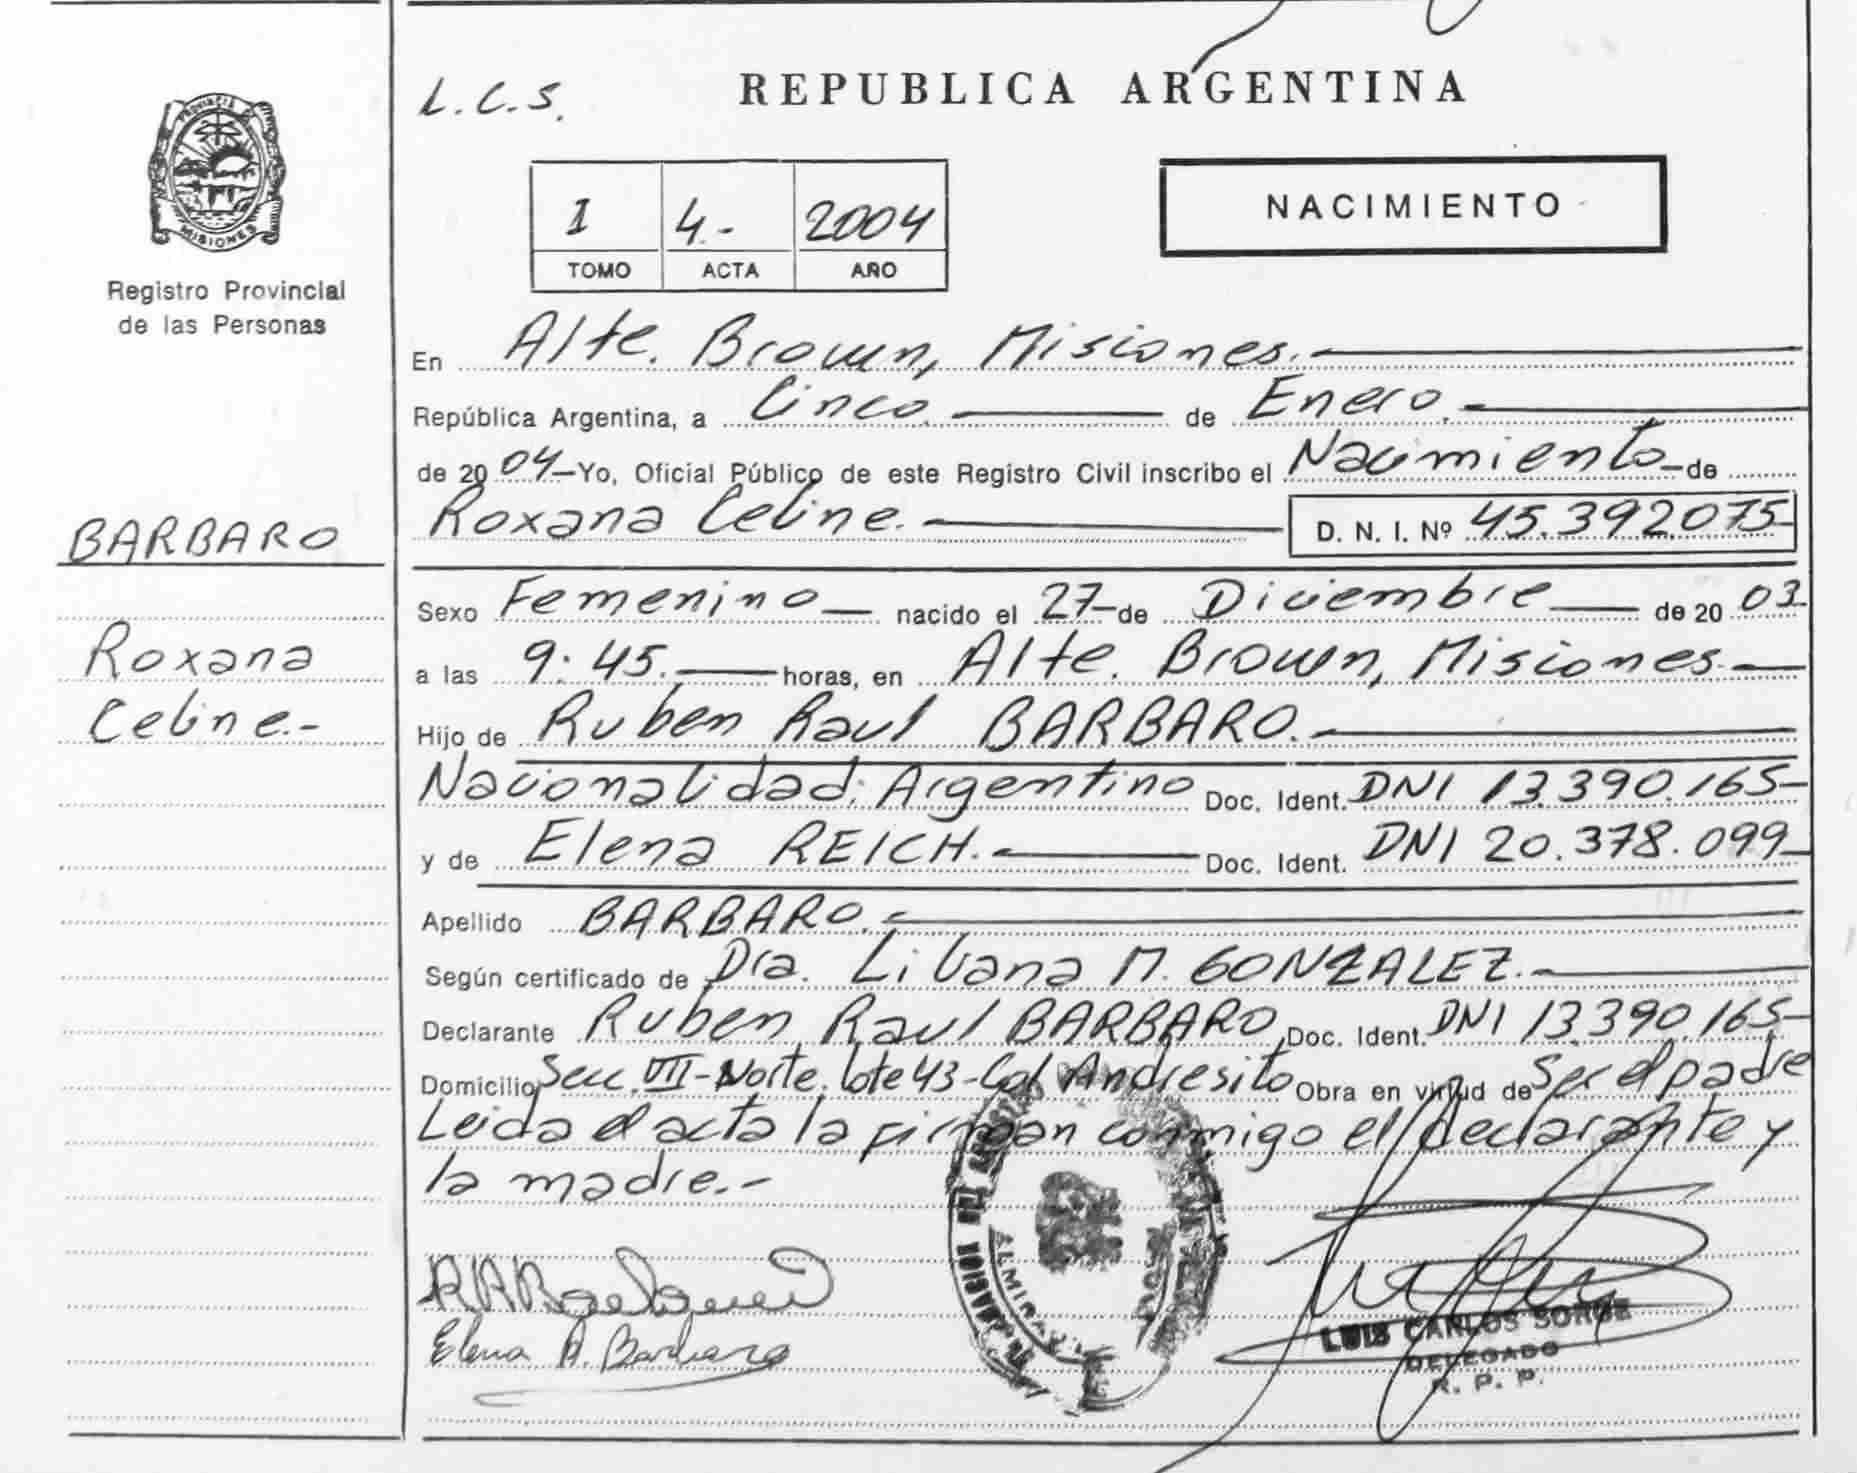 L.C.S.
REPUBLICA ARGENTINA
PROVINCIA DE
MISIONES
Registro Provincial
de las Personas
I 4.- 2004
TOMO ACTA AÑO
NACIMIENTO
En Alte. Brown, Misiones.
República Argentina, a Cinco de Enero.
de 2004 Yo, Oficial Público de este Registro Civil inscribo el Nacimiento de
Roxana Celine. D. N. I. Nº 45.392075
BARBARO
Roxana
Celine.-
Sexo Femenino nacido el 27 de Diciembre de 2003
a las 9:45. horas, en Alte. Brown, Misiones
Hijo de Ruben Raul BARBARO.
Nacionalidad: Argentino Doc. Ident. DNI 13.390.165
y de Elena REICH. Doc. Ident. DNI 20.378.099
Apellido BARBARO.
Según certificado de Dra. Liliana M. GONZALEZ.
Declarante Ruben Raul BARBARO Doc. Ident. DNI 13390.165
Domicilio Secc. VIII-Norte. lote 43-Col Andresito Obra en virtud de Ser el padre
Leida el acta la firman conmigo el declarante y
la madre.-
Elena A. Barbaro
LUIS CARLOS SORGE
DELEGADO
R. P. P.